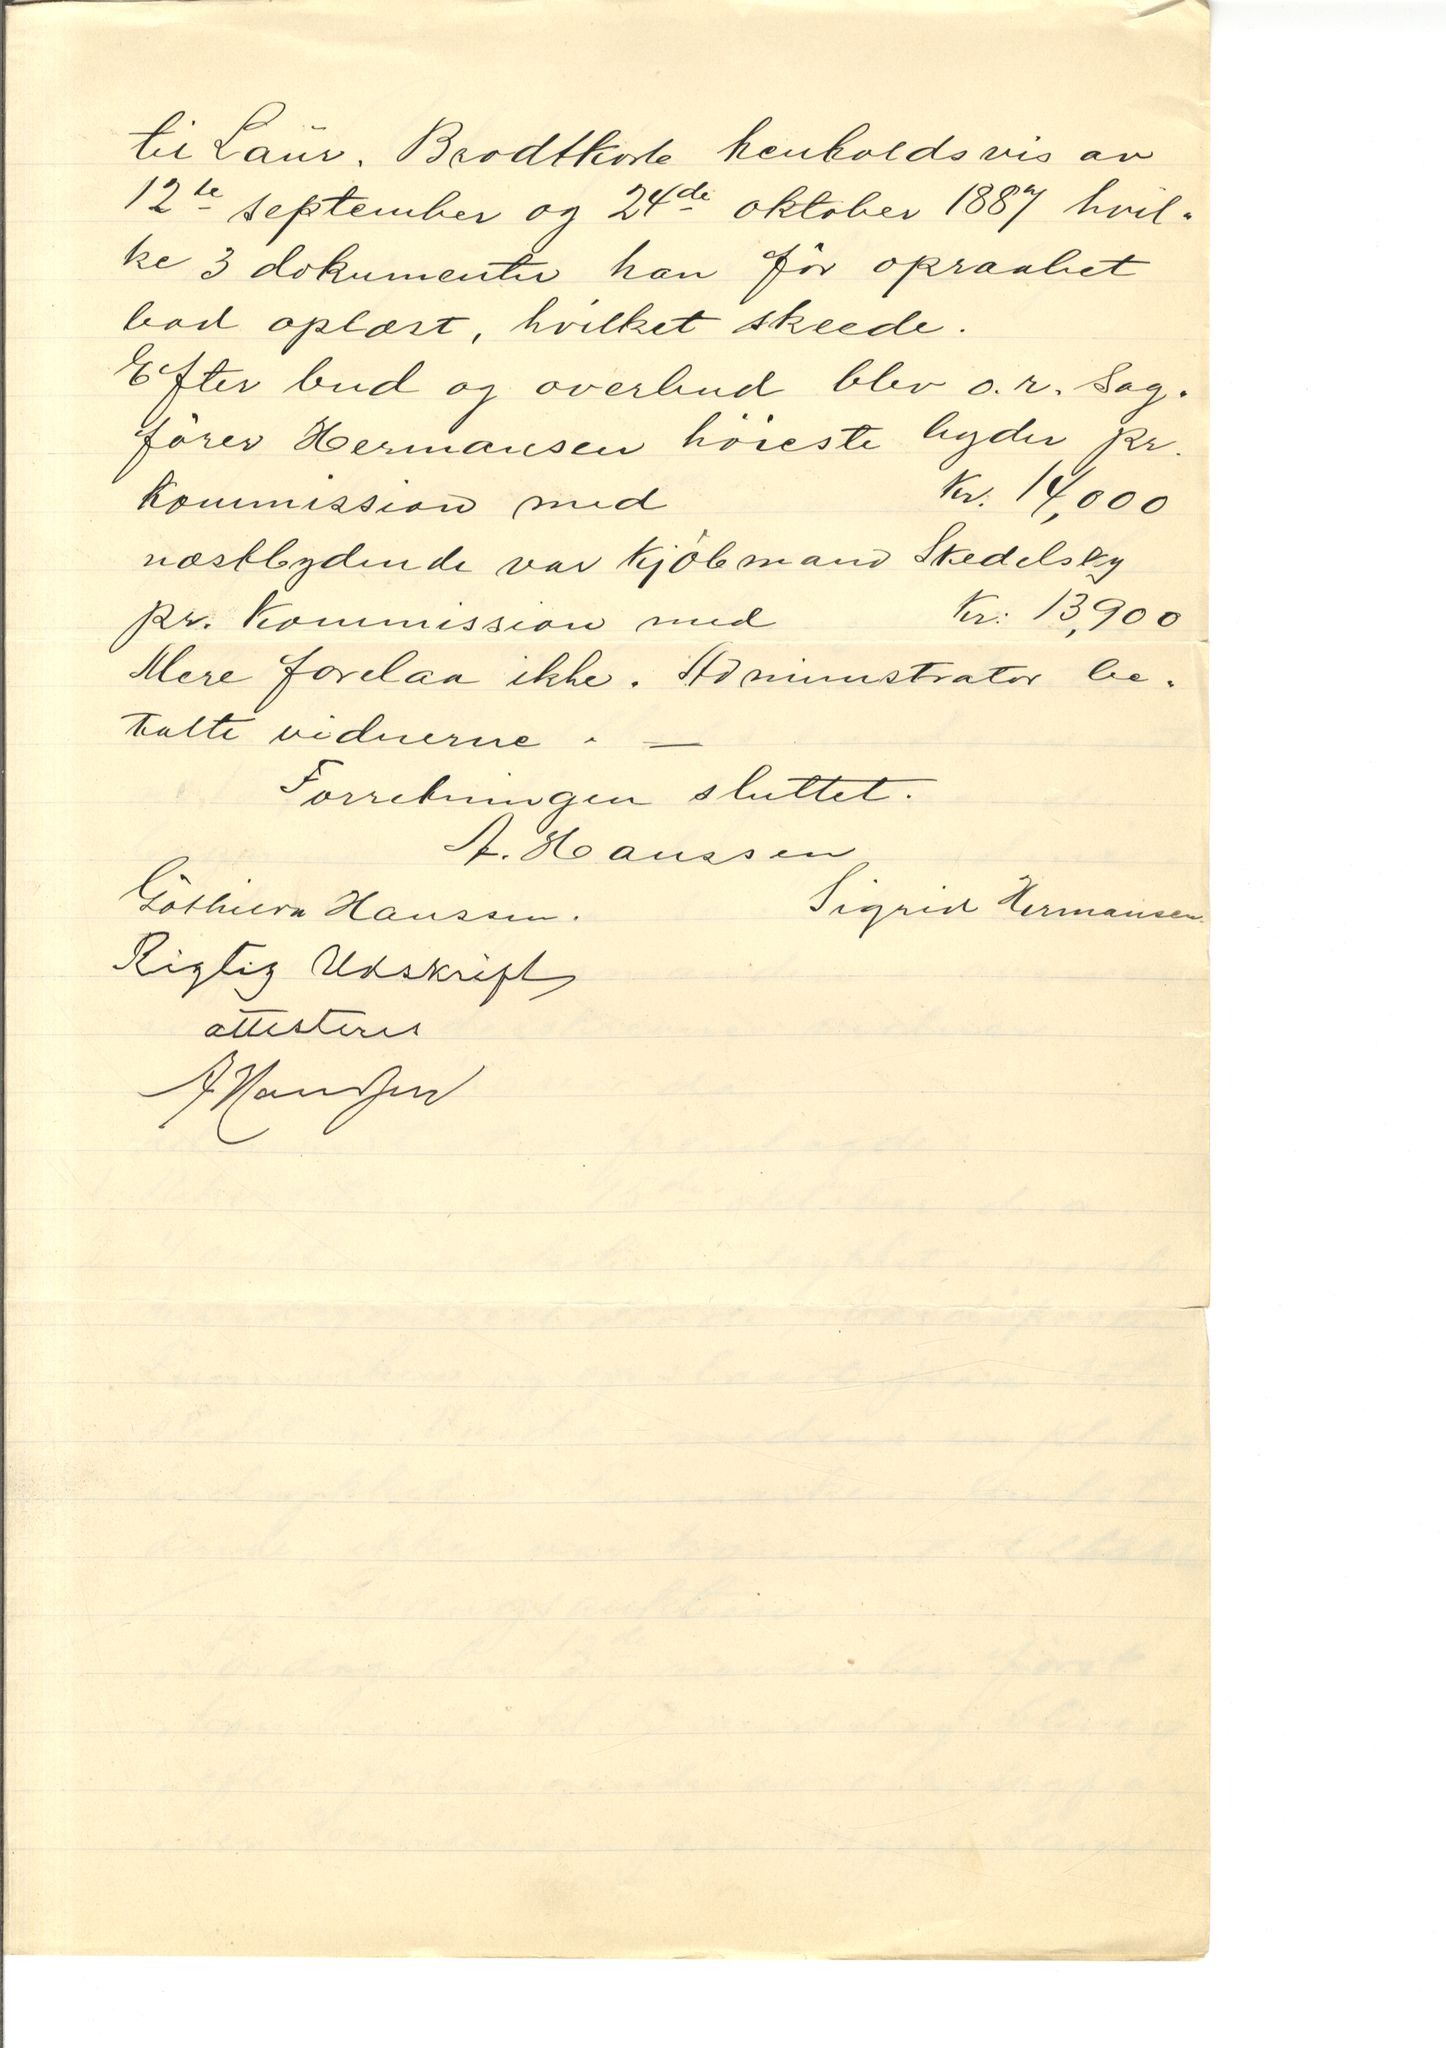 til Laur. Brodtkorb henholdsvis av
12te september og 24de oktober 1887 hvil-
ke 3 dokumenter han før opraabet
bad oplæst, hvilket skeede.
Efter bud og overbud blev o.r. sag-
fører Hermansen høieste byder pr.
kommission med Kr. 14,000
næstbydende var kjøbmand Skedelsky
pr. kommission med Kr: 13,900
Mere forelaa ikke. Administrator be-
talte vidnerne. —
Forretningen sluttet.
A. Hanssen
Hanssen. Sigrid Hermansen.
Rigtig Udskrift
attesteres
A Hanssen